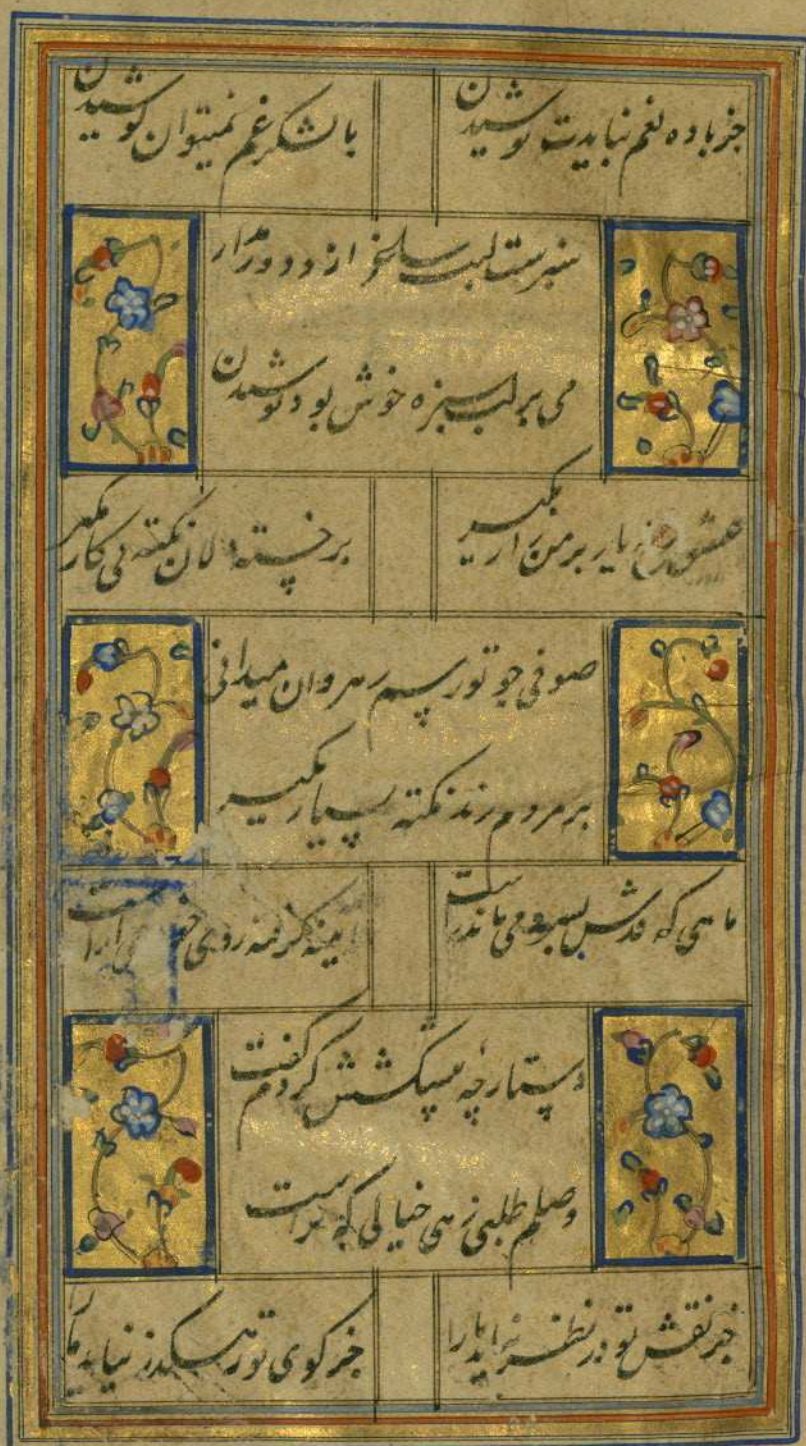 جز باده نغم نبایدت نوشیدن
با لشکر غم نمیتوان کوشیدن
سبزست لبت ساغر ازو دور مدار
می بر لب سبزه خوش بود نوشیدن
عشق رخ یار بر من زار مگیر
بر خسته دلان نکته بی کار مگیر
صوفی چو تو رسم رهروان میدانی
بر مردم رند نکته بسیار مگیر
ماهی که قدش بسرو می ماند راست
آیینه گرفته روی خود می آراست
دستارچه پیشکشش کردم گفت
وصلم طلبی زهی خیالی که تراست
جز نقش تو در نظر نیاید ما را
جز کوی تو رهگذر نیاید ما را